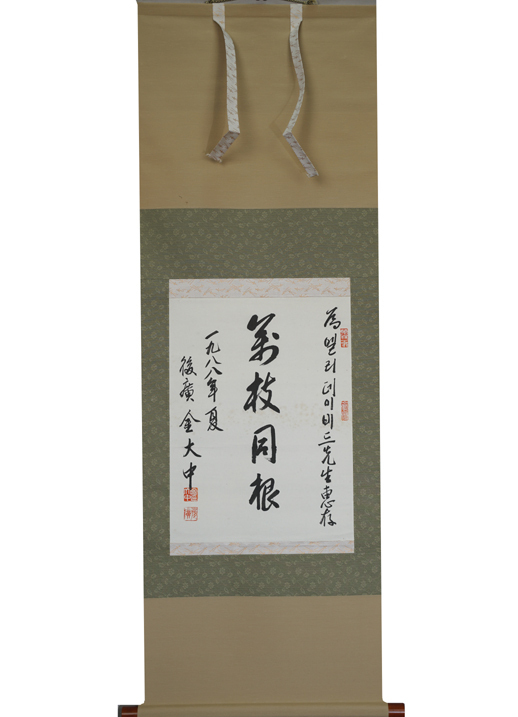 為 밀러 데이비드 先生 惠存
萬枝同根
一九八八年 夏
後廣 金大中